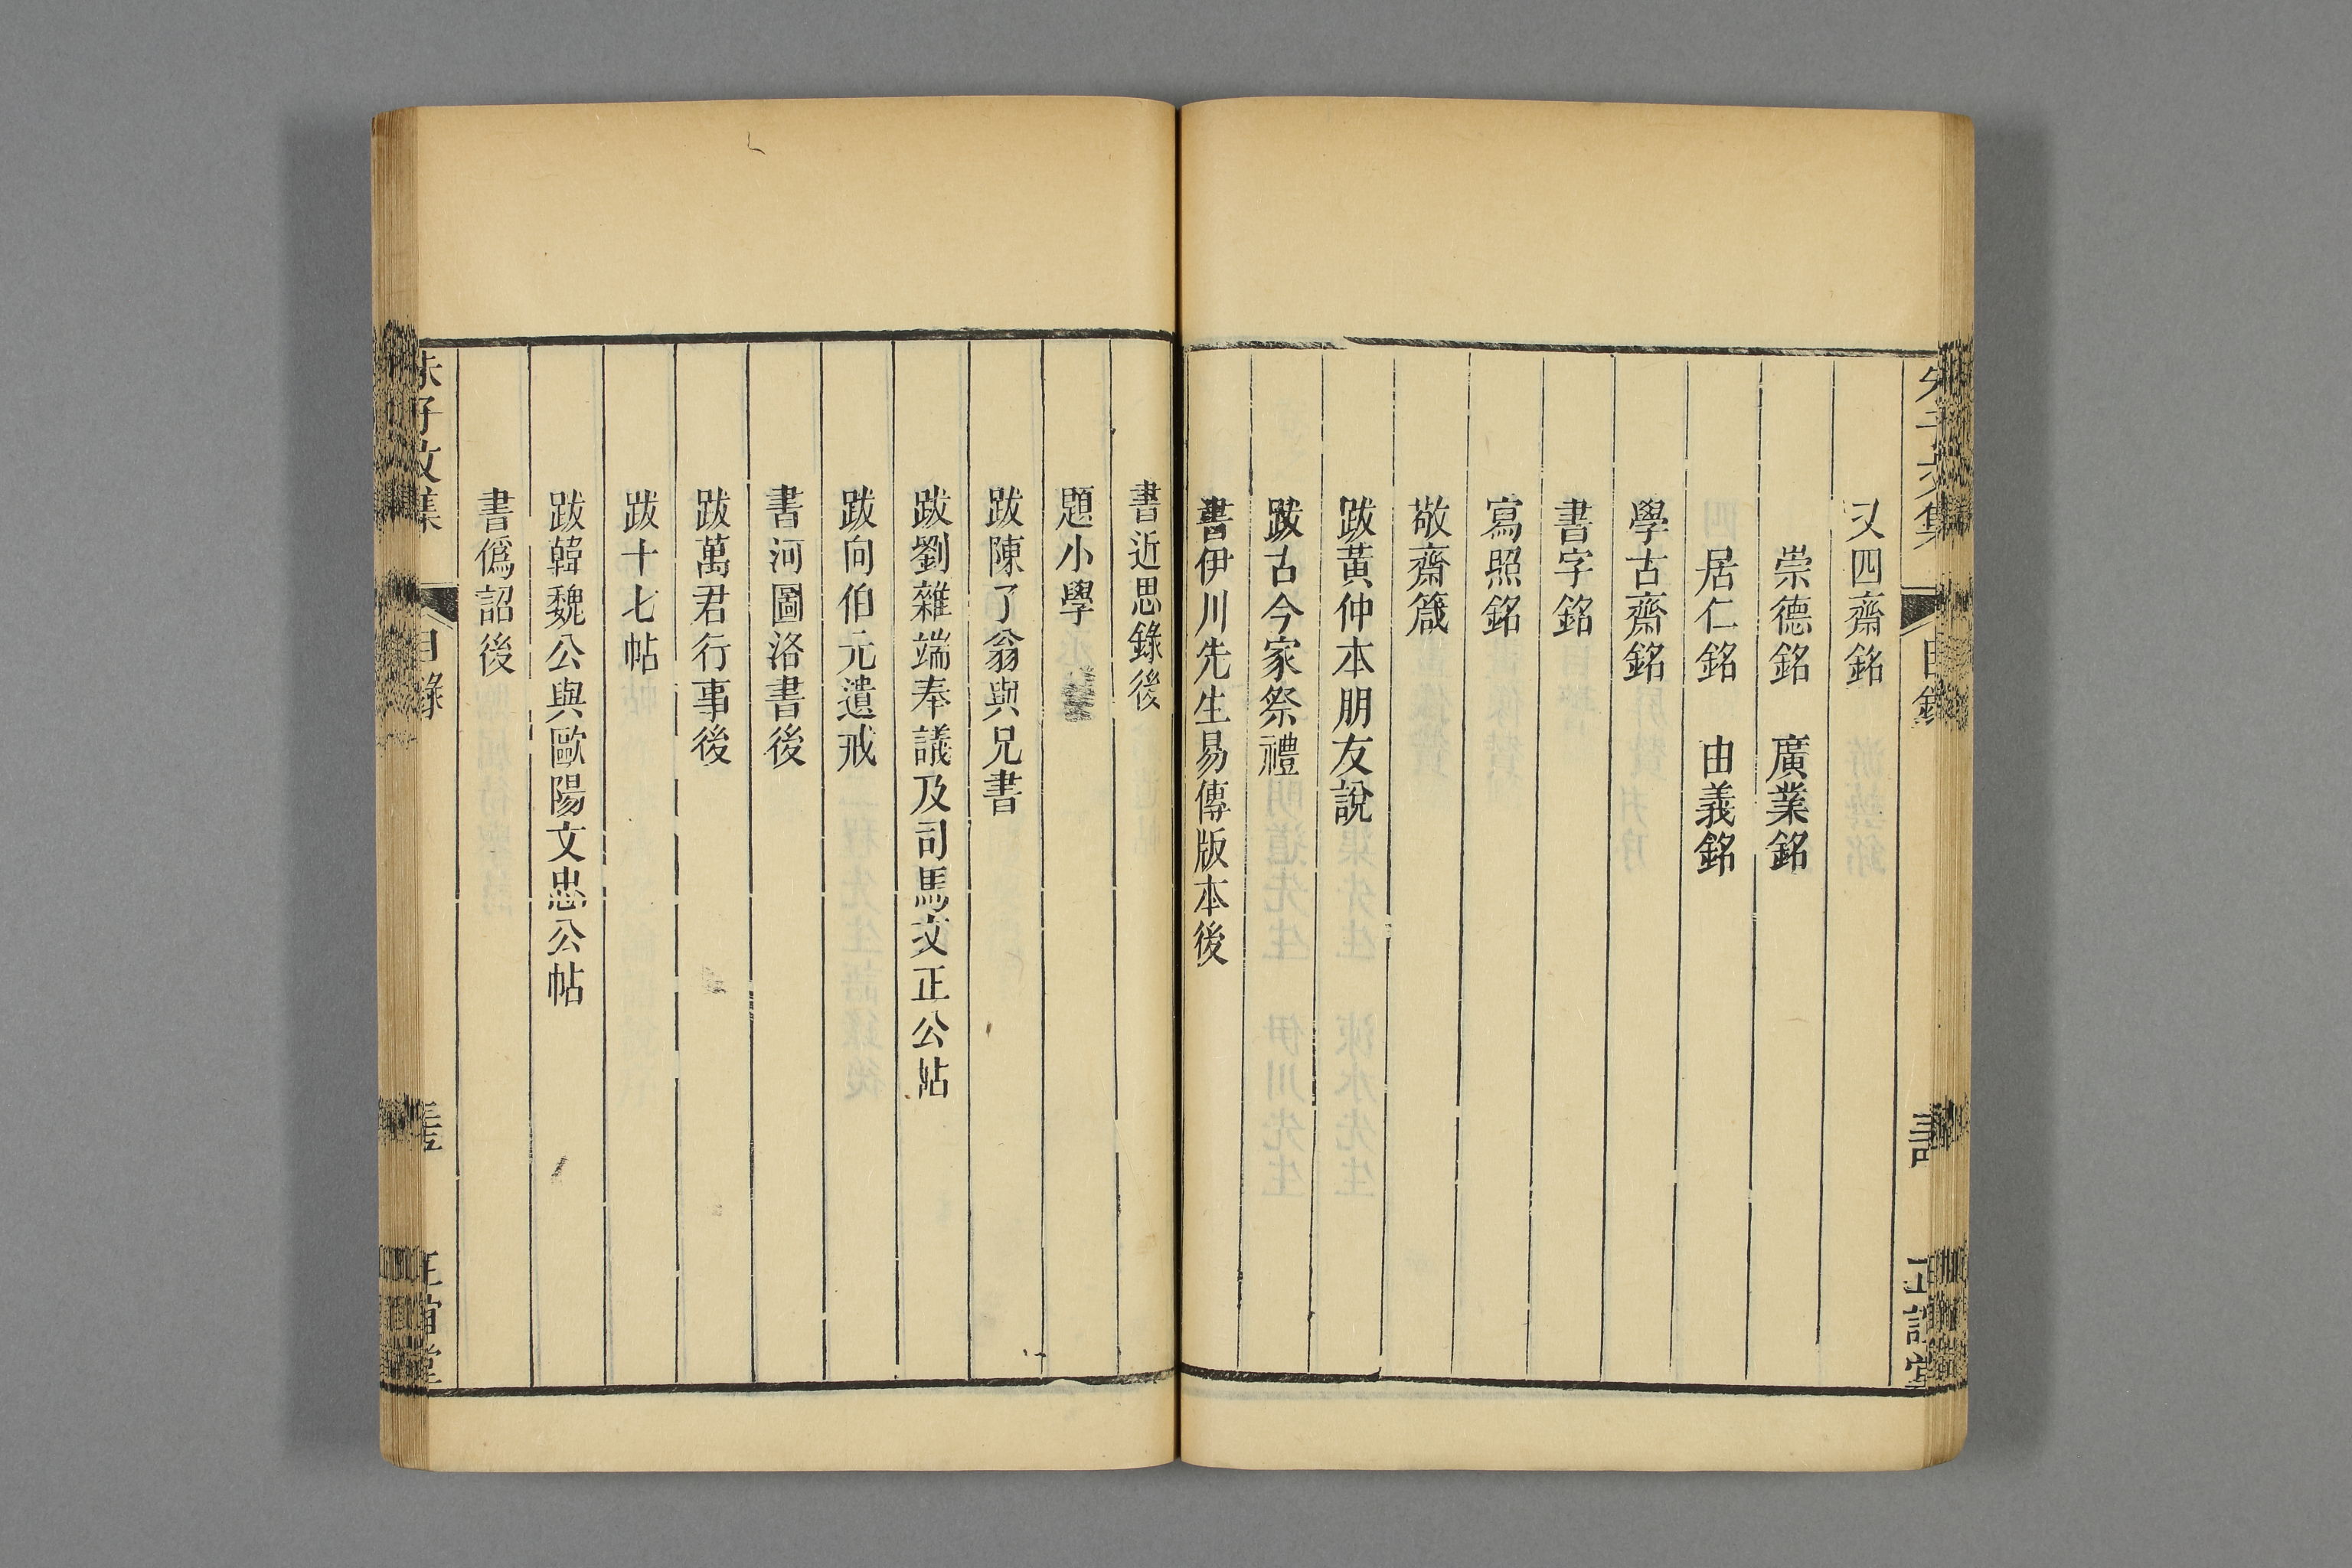 又四齋銘
崇德銘　廣業銘
居仁銘　由義銘
學古齋銘
書字銘
寫照銘
敬齋箴
跋黃仲本朋友說
跋古今家祭禮
書伊川先生易傳版本後
書近思錄後
題小學
跋陳了翁與兄書
跋劉雜端奉議及司馬文正公帖
跋向伯元遺戒
書河圖洛書後
跋萬君行事後
跋十七帖
跋韓魏公與歐陽文忠公帖
書僞詔後
朱子文集
目錄